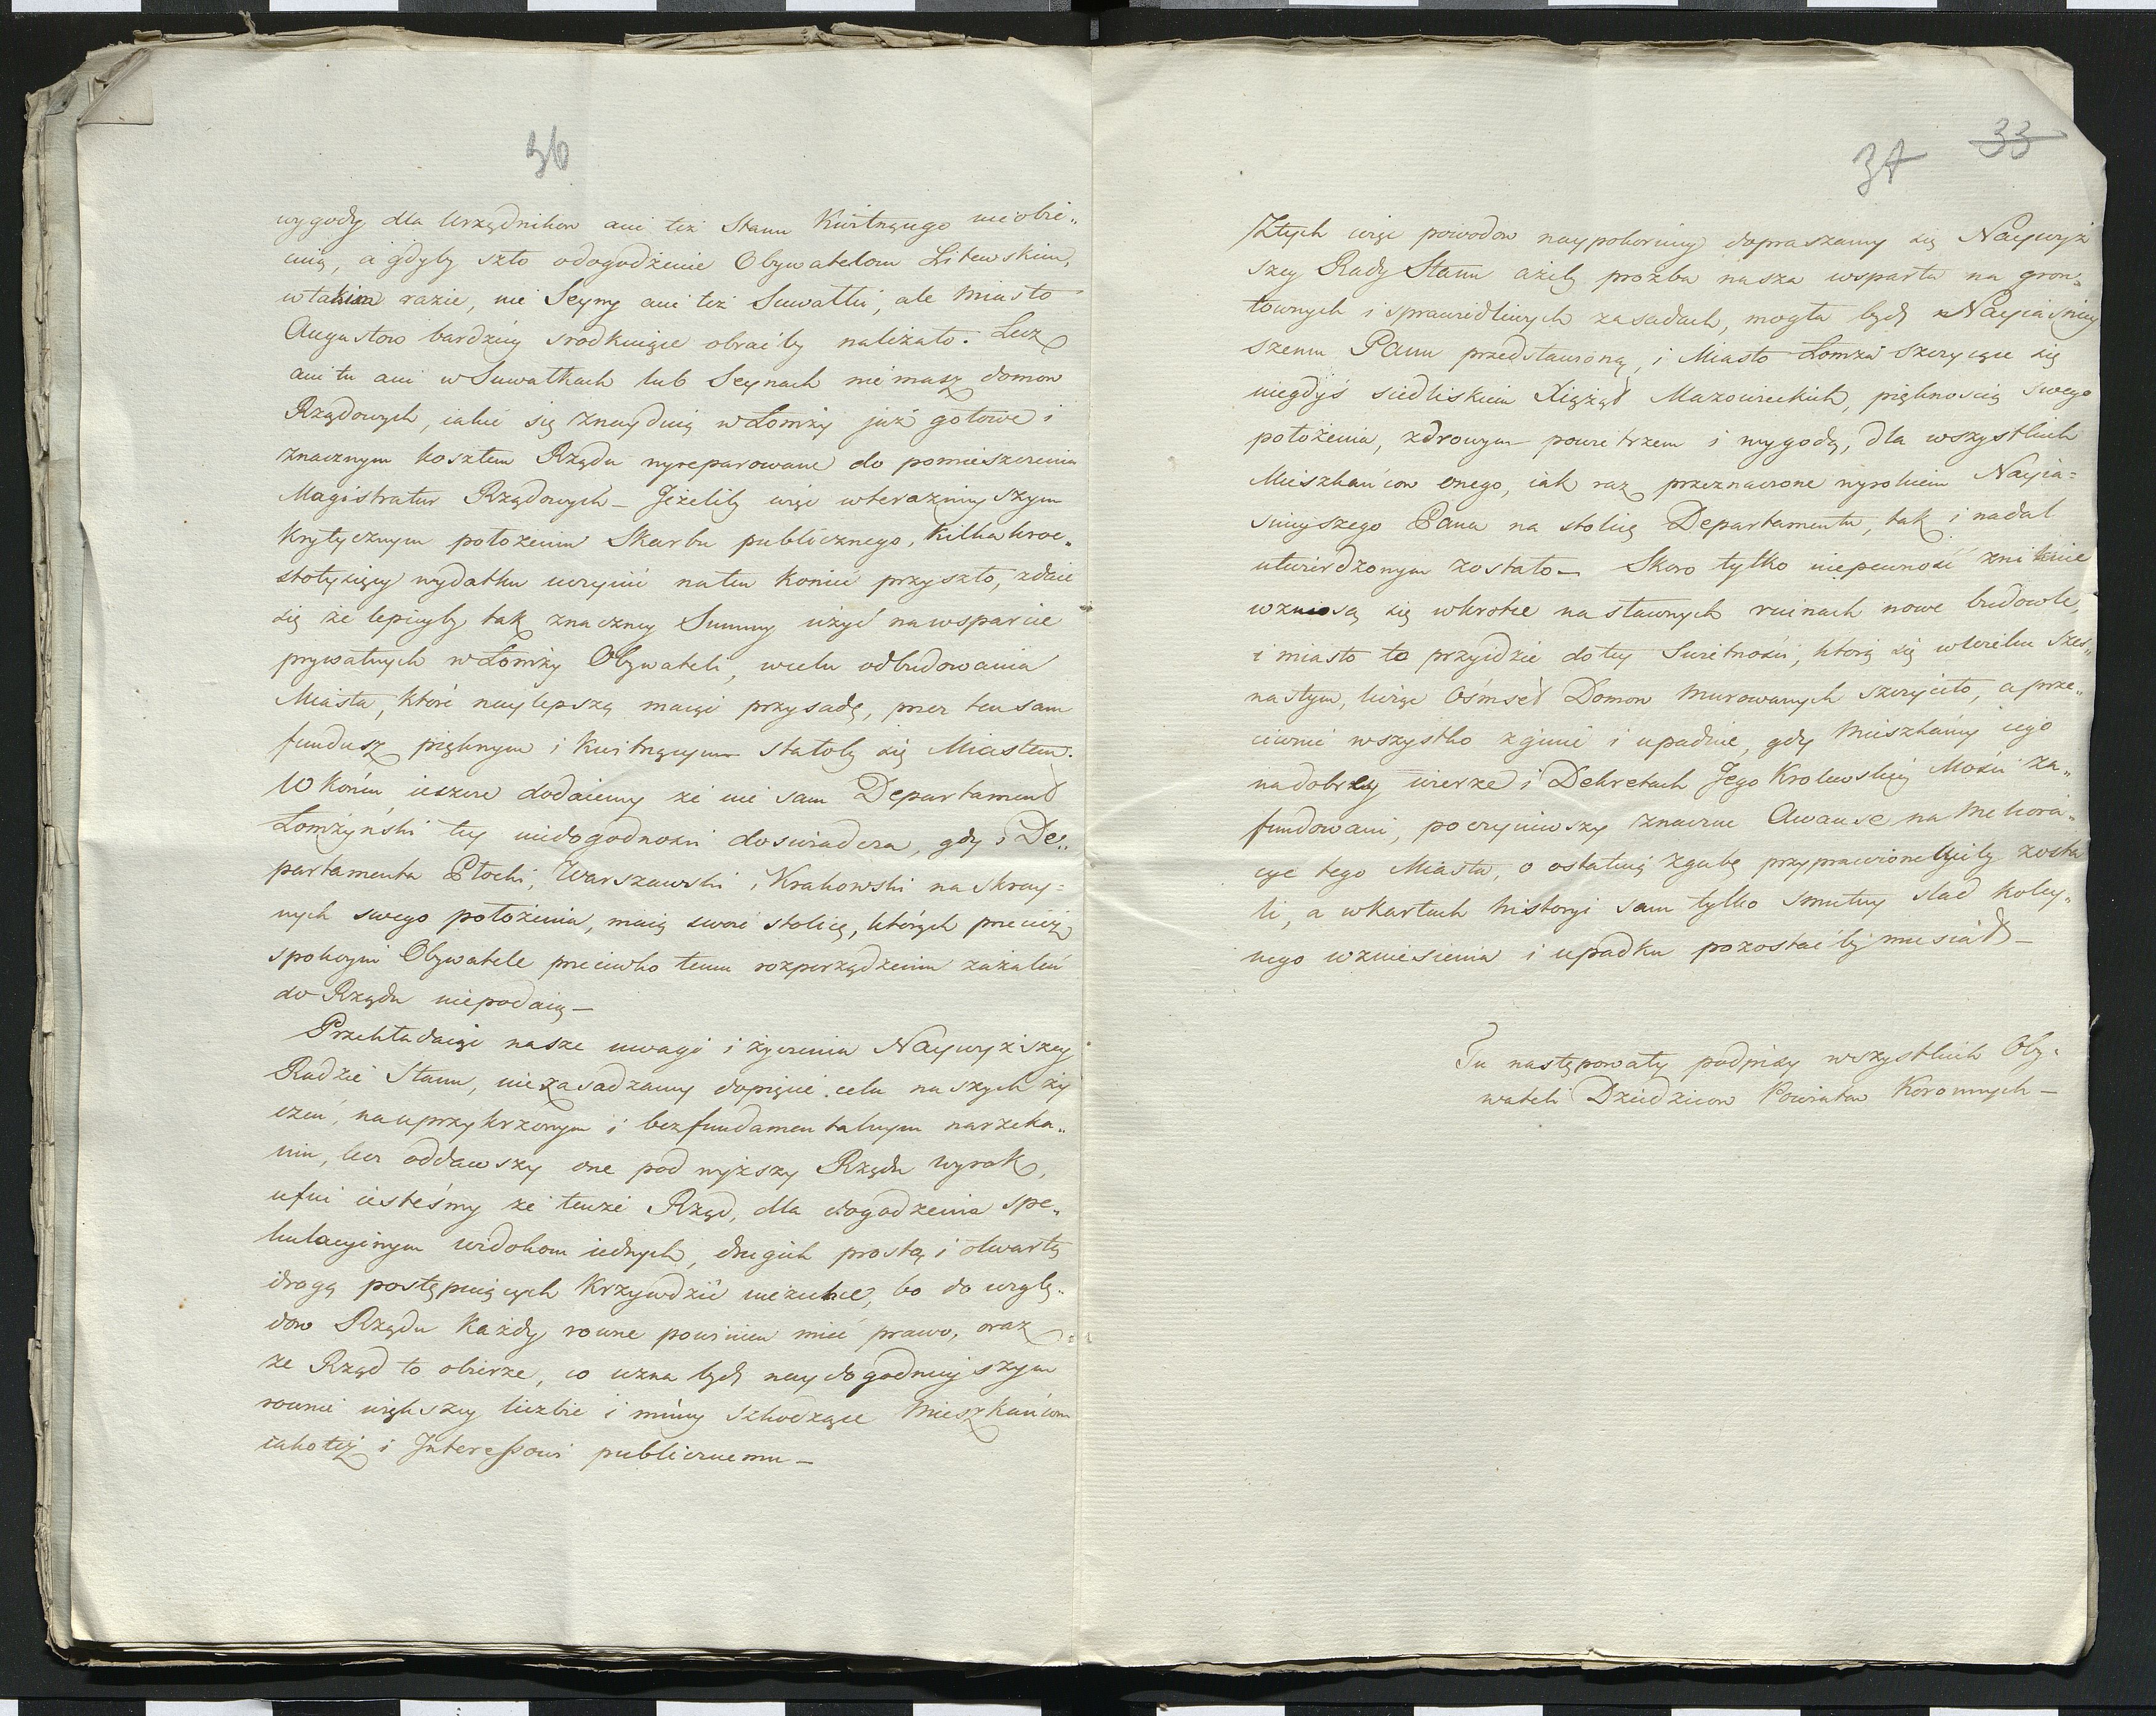 36
wygody dla Urzędnikow ani też Stanu Kwitnącego nieobie„
cuią, a gdyby szło odogodzenie Obywatelom Litewskim,
wtakim razie, nie Seyny ani też Suwałki, ale Miasto
Augustow bardziey srodkuiące obraćby należało. Lecz
ani tu ani w Suwałkach lub Seynach niemasz domow
Rządowych, iakie się znayduią w Łomży już gotowe i
znacznym kosztem Rządu wyreparowane do pomieszczenia
Magistratur Rządowych — Jeżeliby więc wteraznieyszym
krytycznym położeniu Skarbu publicznego, kilkakroc„
stotysięcy wydatku uczynić naten koniec przyszło, zdaie
się że lepieyby tak znaczney Summy użyć nawsparcie
prywatnych w Łomży Obywateli, wcelu odbudowania
Miasta, które naylepszą maiąc przysadę, przez ten sam
fundusz pięknym i kwitnącym stałoby się Miastem.
W końcu ieszcze dodaiemy że nie sam Departament
Łomżyński tey niedogodności doswiadcza, gdy i De„
partamenta Płocki, Warszawski, Krakowski na skray=
nych swego położenia, maią swoie stolice, których przecież
spokoyni Obywatele przeciwko temu rozporządzeniu zażaleń
do Rządu niepodaią —
Przekładaiąc nasze uwagi i życzenia Naywyższey
Radzie Stanu, niezasadzamy dopięcie celu naszych ży
czeń, nauprzykrzonym i bezfundamentalnym narzeka„
niu, lecz oddawszy one pod wyższy Rządu wyrok,
ufni iesteśmy że tenże Rząd, dla dogodzenia spe„
kulacyinym widokom iednych, drugich prostą i otwartą
drogą postępuiących krzywdzić niezechce, bo do wzglę„
dow Rządu każdy rowne powinien mieć prawo, oraz
że Rząd to obierze, co uzna bydź naydogodnieyszym
rownie większey liczbie i mniey szkodzące Mieszkańcom
iakoteż i Interessowi publicznemu —
37 33
Ztych więc powodow naypokorniey dopraszamy się Naywyż
szey Rady Stanu ażeby prozba nasza wsparta na gron„
townych i sprawiedliwych zasadach, mogła bydź Nayiaśniey
szemu Panu przedstawioną, i Miasto Łomża szczycące się
niegdyś siedliskiem Xiążąt Mazowieckich, pięknością swego
położenia, zdrowym powietrzem i wygodą, dla wszystkich
Mieszkańcow onego, iak raz przeznaczone wyrokiem Nayia=
snieyszego Pana na stolicę Departamentu, tak i nadal
utwierdzonym zostało — Skoro tylko niepewność zniknie
wzniosą się wkrotce nasławnych ruinach nowe budowle,
i miasto to przyidzie do tey Swietności, którą się wwieku szes„
nastym, licząc Ośmset Domow murowanych szczyciło, a prze„
ciwnie wszystko zginie i upadnie, gdy Mieszkańcy iego
nadobrey wierze i Dekretach Jego Krolewskiey Mości za„
fundowani, poczyniwszy znaczne Awanse na Meliora„
cye tego Miasta, o ostatnią zgubę przyprawionemiby zosta
li, a wkartach historyi sam tylko smutny slad koley„
nego wzniesienia i upadku pozostaćby musiał —
Tu następowały podpisy wszystkich Oby„
wateli Dziedzicow Powiatow Koronnych —